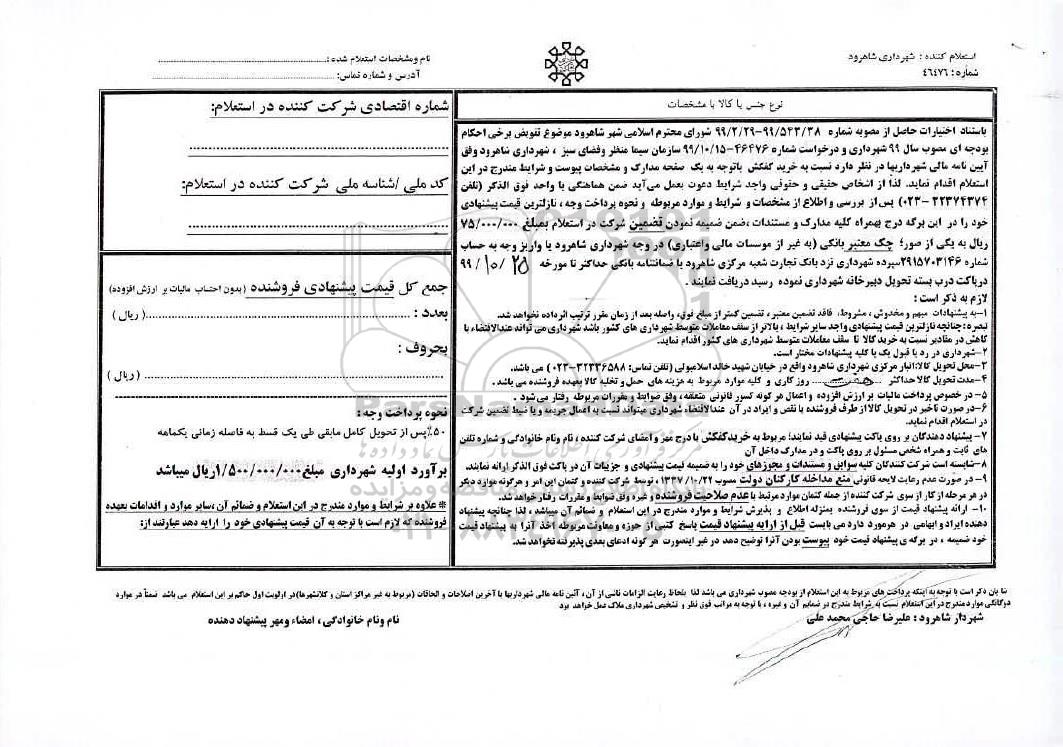 استعلام کننده : شهرداری شاهرود
شماره: ۴۶۴۷۶
نام ومشخصات استعلام شده:
آدرس و شماره تماس:
نوع جنس یا کالا با مشخصات
باستناد اختیارات حاصل از مصوبه شماره ۹۹/۵۴۳/۳۸-۹۹/۲/۲۹ شورای محترم اسلامی شهر شاهرود موضوع تفویض برخی احکام
بودجه ای مصوب سال ۹۹ شهرداری و درخواست شماره ۴۶۴۷۶-۹۹/۱۰/۱۵ سازمان سیما منظر وفضای سبز ، شهرداری شاهرود وفق
آیین نامه مالی شهرداریها در نظر دارد نسبت به خرید کفکش باتوجه به یک صفحه مدارک و مشخصات پیوست و شرایط مندرج در این
استعلام اقدام نماید. لذا از اشخاص حقیقی و حقوقی واجد شرایط دعوت بعمل می‌آید ضمن هماهنگی با واحد فوق الذکر (تلفن
۳۲۳۷۴۳۷۴ -۰۲۳) پس از بررسی و اطلاع از مشخصات و شرایط و موارد مربوطه و نحوه پرداخت وجه ، نازلترین قیمت پیشنهادی
خود را در این برگه درج بهمراه کلیه مدارک و مستندات ،ضمن ضمیمه نمودن تضمین شرکت در استعلام بمبلغ ۷۵/۰۰۰/۰۰۰
ریال به یکی از صور؛ چک معتبر بانکی (به غیر از موسسات مالی واعتباری) در وجه شهرداری شاهرود یا واریز وجه به حساب
شماره ۲۹۱۵۷۰۳۱۴۶سپرده شهرداری نزد بانک تجارت شعبه مرکزی شاهرود یا ضمانتنامه بانکی حداکثر تا مورخه ۹۹/۱۰/۲۵
درپاکت درب بسته تحویل دبیرخانه شهرداری نموده رسید دریافت نمایند .
لازم به ذکر است :
۱-به پیشنهادات مبهم و مخدوش ، مشروط، فاقد تضمین معتبر ، تضمین کمتر از مبلغ فوق، واصله بعد از زمان مقرر ترتیب اثر داده نخواهد شد.
تبصره:چنانچه نازلترین قیمت پیشنهادی واجد سایر شرایط ، بالاتر از سقف معاملات متوسط شهرداری های کشور باشد شهرداری می تواند عندالاقتضاء با
کاهش در مقادیر نسبت به خرید کالا تا سقف معاملات متوسط شهرداری های کشور اقدام نماید.
۲-شهرداری در رد یا قبول یک یا کلیه پیشنهادات مختار است.
۳-محل تحویل کالا:انبار مرکزی شهرداری شاهرود واقع در خیابان شهید خالد اسلامبولی (تلفن تماس: ۳۲۳۳۶۵۸۸-۰۲۳ ) می باشد.
۴-مدت تحویل کالا حداکثر روز کاری و کلیه موارد مربوط به هزینه های حمل و تخلیه کالا بعهده فروشنده می باشد .
۵-در خصوص پرداخت مالیات بر ارزش افزوده واعمال هر گونه کسور قانونی متعلقه ، وفق ضوابط و مقررات مربوطه رفتار می شود .
۶-در صورت تاخیر در تحویل کالا از طرف فروشنده یا نقص و ایراد در آن عندالاقتضاء شهرداری میتواند نسبت به اعمال جریمه و یا ضبط تضمین شرکت
در استعلام اقدام نماید.
۷- پیشنهاد دهندگان بر روی پاکت پیشنهادی قید نمایند؛ مربوط به خرید کفکش با درج مهر و امضای شرکت کننده ، نام ونام خانوادگی و شماره تلفن
های ثابت و همراه شخص مسئول بر روی پاکت و در مدارک داخل آن
۸-شایسته است شرکت کنندگان کلیه سوابق و مستندات و مجوزهای خود را به ضمیمه قیمت پیشنهادی و جزییات آن در پاکت فوق الذکر ارائه نمایند.
۹-در صورت عدم رعایت لایحه قانونی منع مداخله کارکنان دولت مصوب ۱۳۳۷/۱۰/۲۲ ، توسط شرکت کننده و کتمان این امر و هرگونه موارد دیگر
در هر مرحله از کار از سوی شرکت کننده از جمله کتمان موارد مرتبط با عدم صلاحیت فروشنده و غیره وفق ضوابط و مقررات رفتار خواهد شد.
۱۰- ارائه پیشنهاد قیمت از سوی فروشنده بمنزله اطلاع و پذیرش شرایط و موارد مندرج در این استعلام و ضمائم آن میباشد ، لذا چنانچه پیشنهاد
دهنده ایراد و ابهامی در هرمورد دارد می بایست قبل از ارایه پیشنهاد قیمت پاسخ کتبی از حوزه و معاونت مربوطه اخذ آنرا به پیشنهاد قیمت
خود ضمیمه ، در برگه ی پیشنهاد قیمت خود پیوست بودن آنرا توضیح دهد در غیر اینصورت هر گونه ادعای بعدی پذیرفته نخواهد شد.
شماره اقتصادی شرکت کننده در استعلام:
کد ملی /شناسه ملی شرکت کننده در استعلام:
جمع کل قیمت پیشنهادی فروشنده (بدون احتساب مالیات بر ارزش افزوده)
بعدد : ( ریال )
بحروف :
( ریال )
نحوه پرداخت وجه :
۵۰٪پس از تحویل کامل مابقی طی یک قسط به فاصله زمانی یکماهه
برآورد اولیه شهرداری مبلغ۱/۵۰۰/۰۰۰/۰۰۰ریال میباشد
※علاوه بر شرایط و موارد مندرج در این استعلام و ضمائم آن ،سایر موارد و اقدامات بعهده
فروشنده که لازم است با توجه به آن قیمت پیشنهادی خود را ارایه دهد عبارتند از:
شایان ذکر است با توجه به اینکه پرداخت های مربوط به این استعلام از بودجه مصوب شهرداری می باشد لذا بلحاظ رعایت الزامات ناشی از آن ، آئین نامه مالی شهرداریها با آخرین اصلاحات و الحاقات (مربوط به غیر مراکز استان و کلانشهرها)در اولویت اول حاکم بر این استعلام می باشد ضمناً در موارد
دوگانگی موارد مندرج در این استعلام نسبت به شرایط مندرج در ضمایم آن و غیره ، با توجه به مراتب فوق نظر و تشخیص شهرداری ملاک عمل خواهد بود
شهردار شاهرود : علیرضا حاجی محمد علی
نام ونام خانوادگی ، امضاء ومهر پیشنهاد دهنده
ParsNamadData